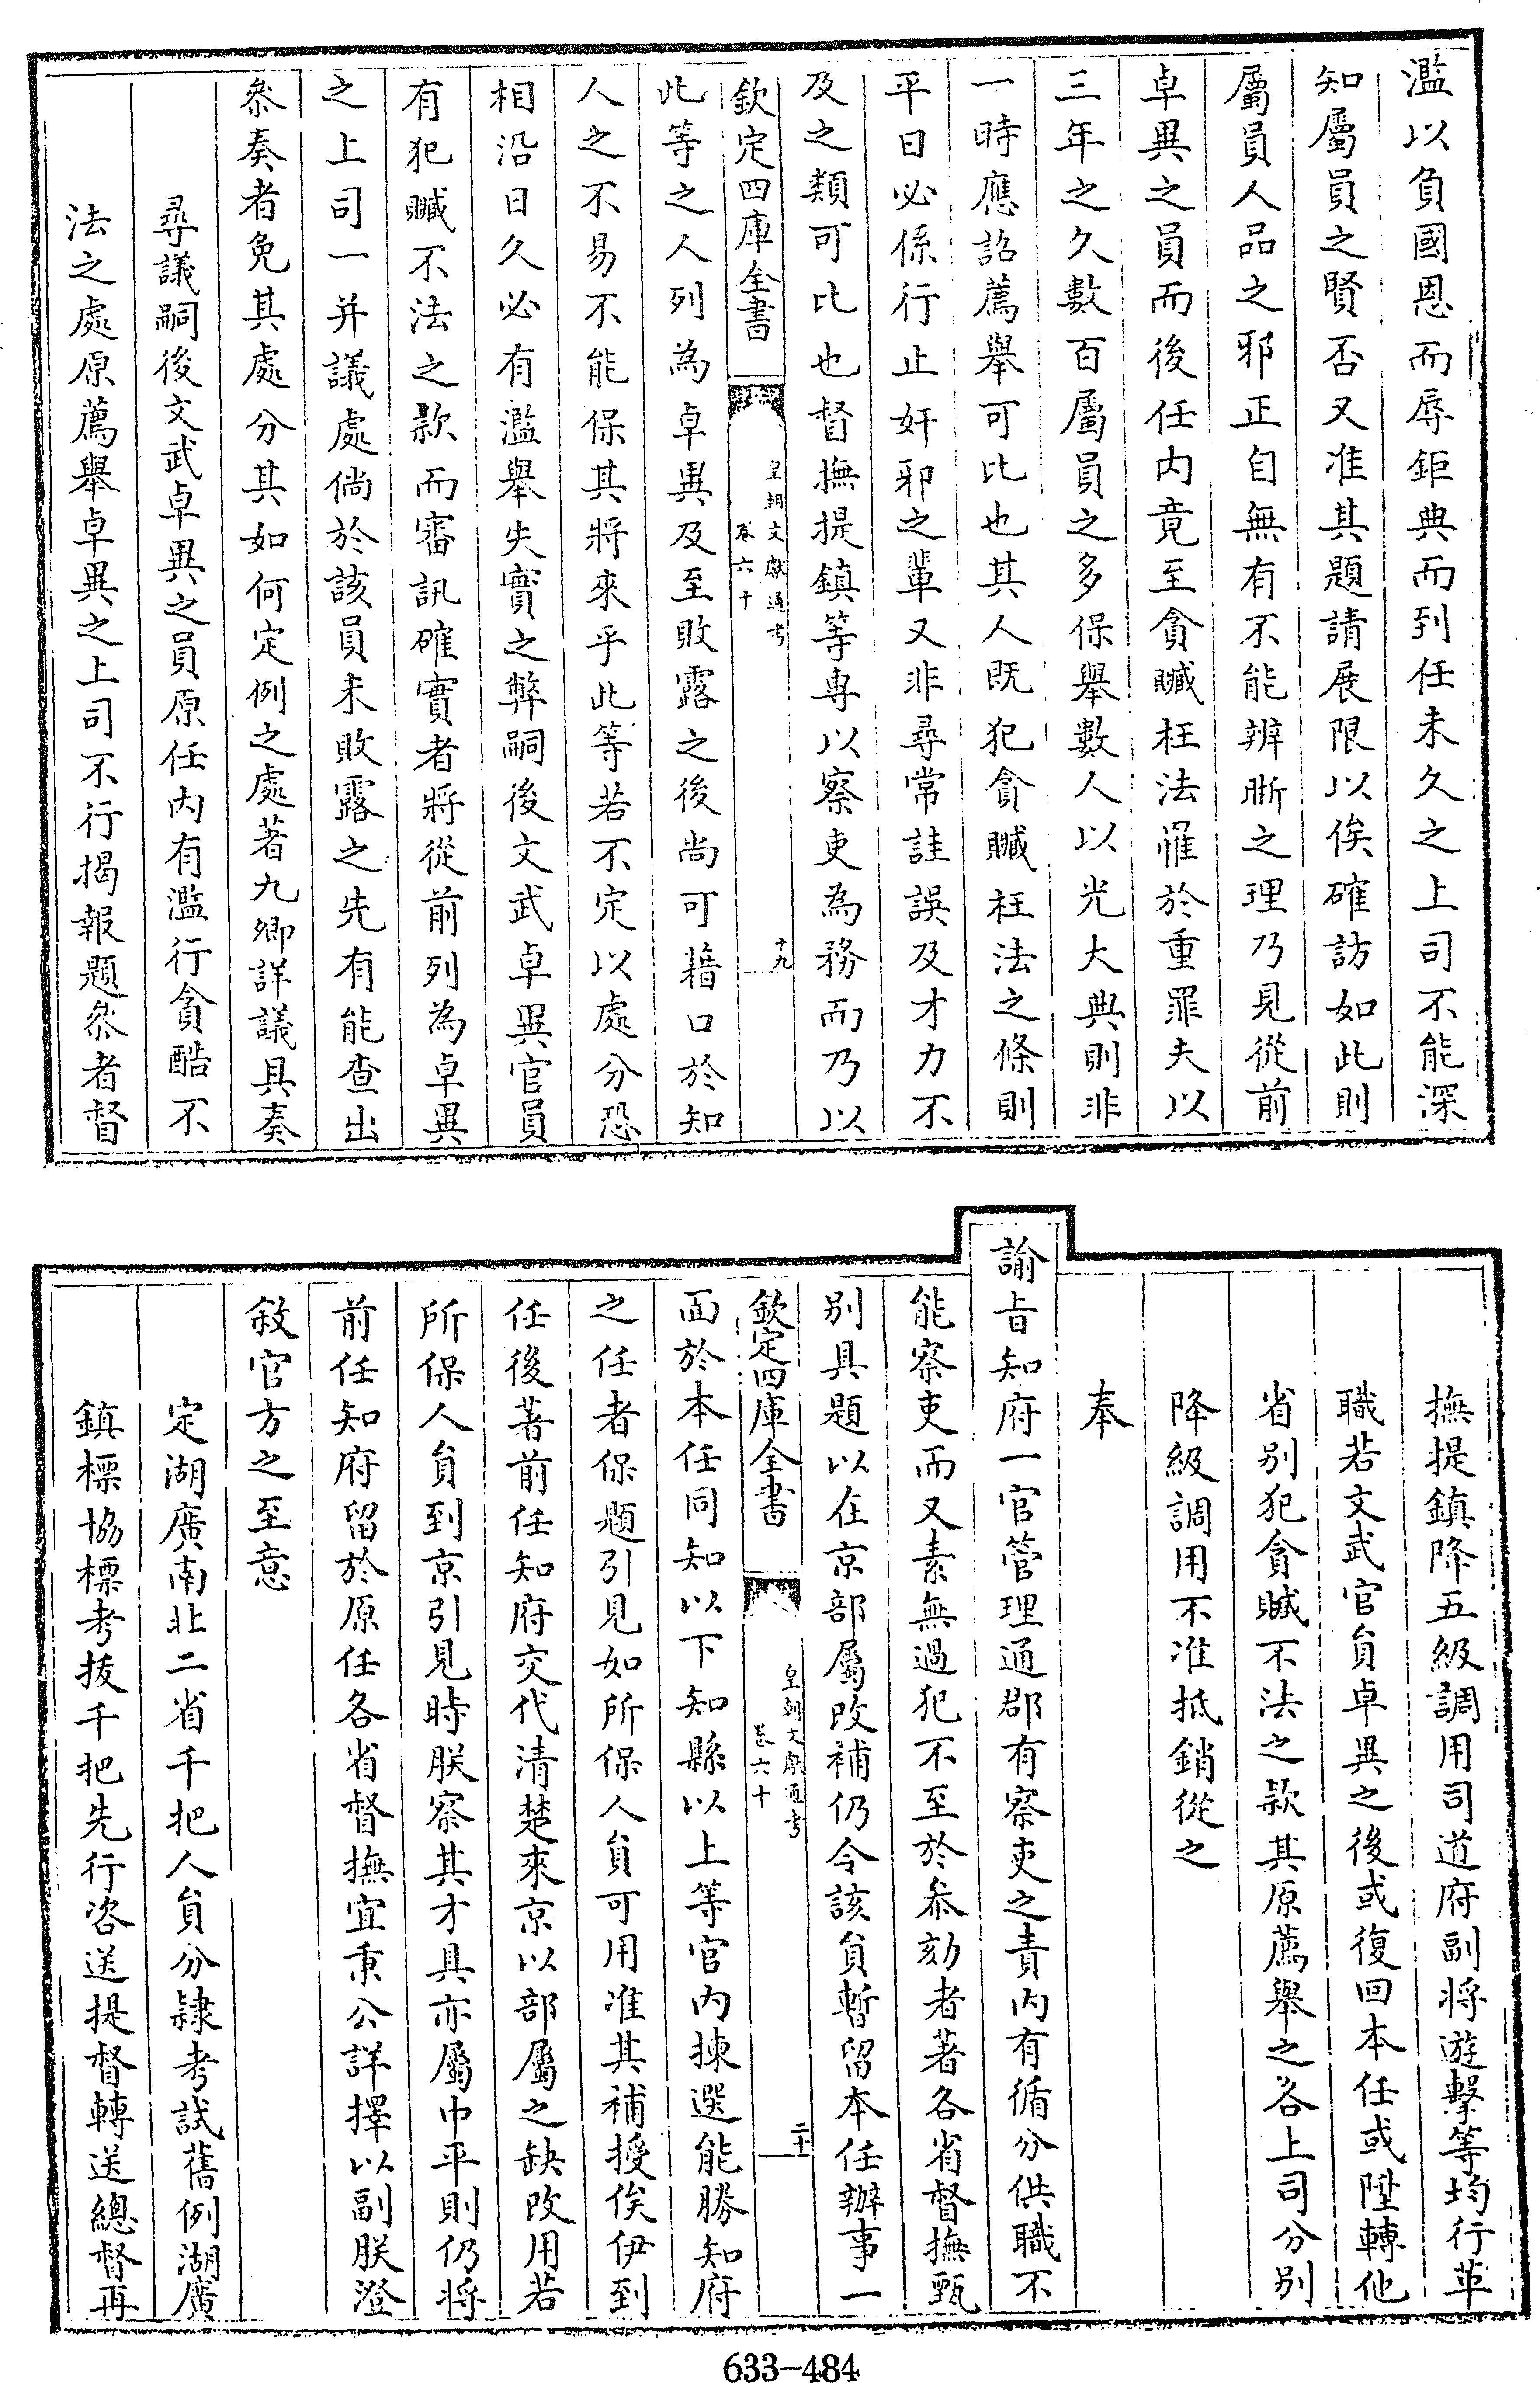 濫以負國恩而辱鉅典而到任未久之上司不能深
知屬員之賢否又准其題請展限以俟確訪如此則
屬員人品之邪正自無有不能辨晰之理乃見從前
卓異之員而後任内竟至貪贓枉法罹於重罪夫以
三年之久數百屬員之多保舉數人以光大典則非
一時應詔薦舉可比也其人既犯貪贓枉法之條則
平日必係行止奸邪之輩又非尋常詿誤及才力不
及之類可比也督撫提鎮等専以察吏為務而乃以
欽定四庫全書
皇朝文獻通考
卷六十
十九
此等之人列為卓異及至敗露之後尚可藉口於知
人之不易不能保其將來乎此等若不定以處分恐
相沿日久必有濫舉失實之弊嗣後文武卓異官員
有犯贓不法之款而審訊確實者將從前列為卓異
之上司一并議處倘於該員未敗露之先有能查出
叅奏者免其處分其如何定例之處著九卿詳議具奏
尋議嗣後文武卓異之員原任内有濫行貪酷不
法之處原薦舉卓異之上司不行揭報題叅者督
撫提鎮降五級調用司道府副將遊擊等均行革
職若文武官員卓異之後或復回本任或陞轉他
省别犯貪贓不法之款其原薦舉之各上司分别
降級調用不准抵銷從之
奉
諭旨知府一官管理通郡有察吏之責内有循分供職不
能察吏而又素無過犯不至於叅劾者著各省督撫甄
别具題以在京部屬改補仍令該員暫留本任辦事一
欽定四庫全書
皇朝文獻通考
卷六十
二十
面於本任同知以下知縣以上等官内揀選能勝知府
之任者保題引見如所保人員可用准其補授俟伊到
任後著前任知府交代清楚來京以部屬之缺改用若
所保人員到京引見時朕察其才具亦屬中平則仍將
前任知府留於原任各省督撫宜秉公詳擇以副朕澄
敘官方之至意
定湖廣南北二省千把人員分隸考試舊例湖廣
鎮標協標考拔千把先行咨送提督轉送總督再
633-484